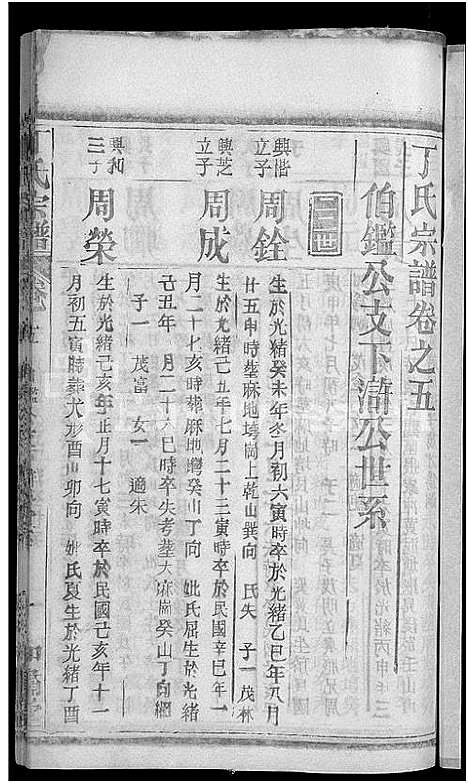 丁氏宗譜卷之五
伯鑑公支下滸公世系
興諧
立子
周銓
生於光緒癸未年冬月初六寅時卒於光緒乙巳年八月
廿五申時塟麻地塆岡上乾山巽向 氏失 子一 茂林
興芝
立子
周成
生於光緒己丑年七月二十三寅時卒於民國辛巳年一
月二十七亥時葬麻地灣癸山丁向 妣氏屈生於光緒
己丑年 月二十六巳時卒失考塟大麻崗癸山丁向
子一 茂富 女一 適朱
興和
三子
周榮
生於光緒己亥年正月十七寅時卒於民國己亥年十一
月初五寅時葬犬形酉山卯向 妣氏夏生於光緒丁酉
丁氏宗譜